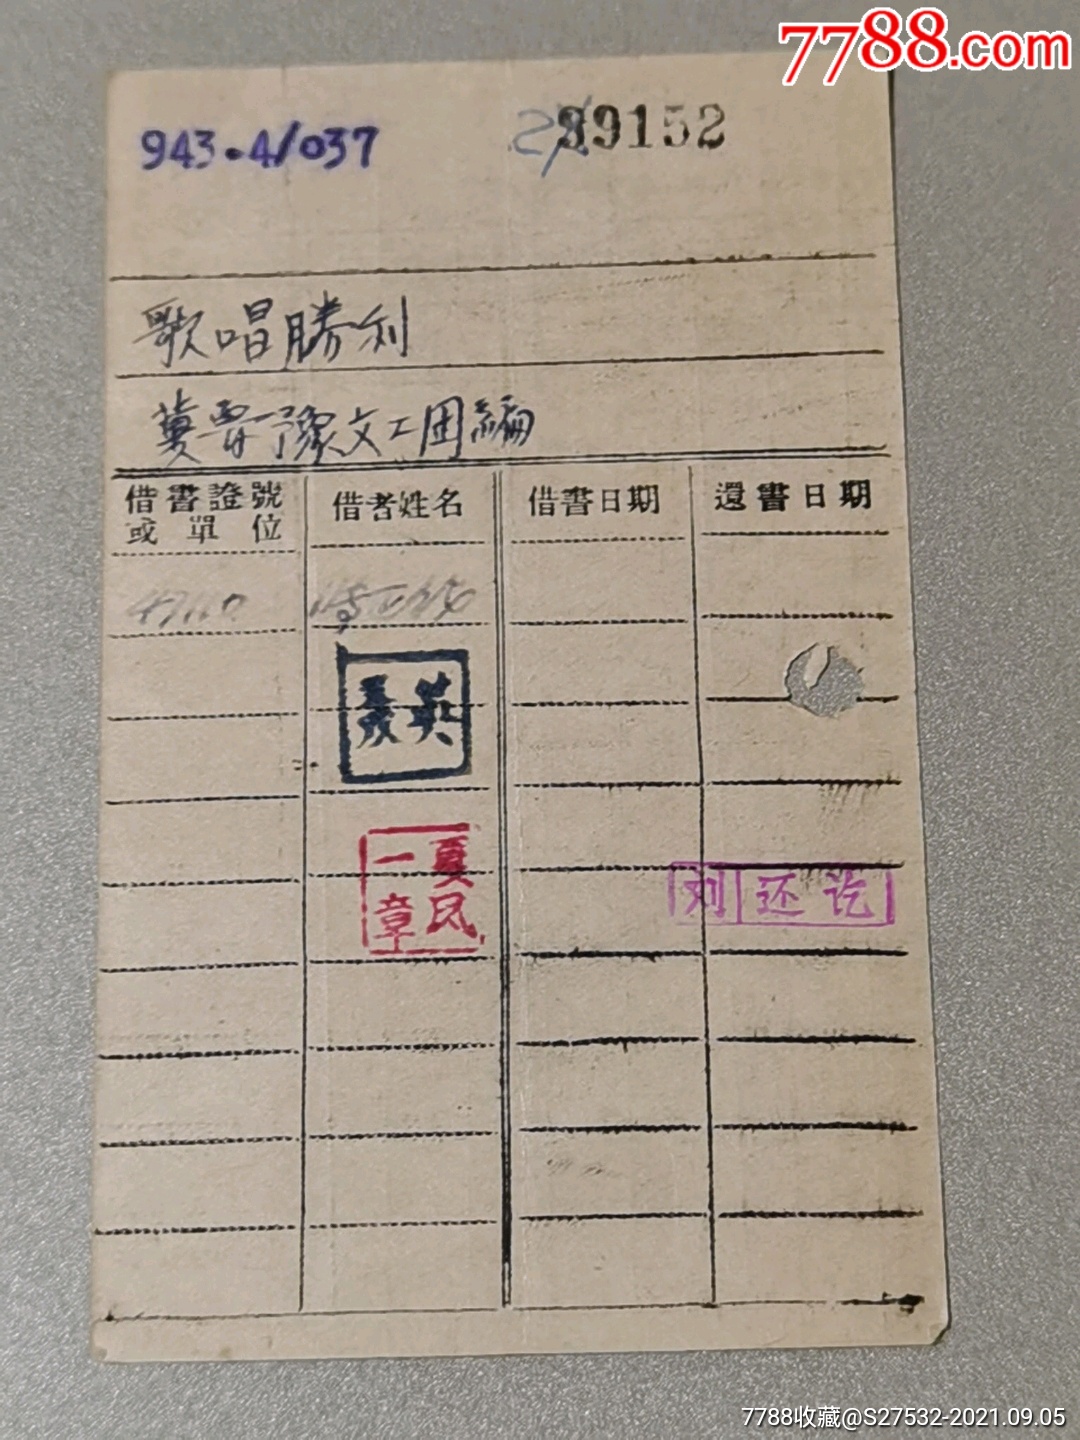 7788.com
943.4/037
39152
歌唱勝利
冀晋豫文工团編
借書證號或單位
借者姓名
借書日期
還書日期
夏民一章
刘 还讫
7788收藏@S27532-2021.09.05